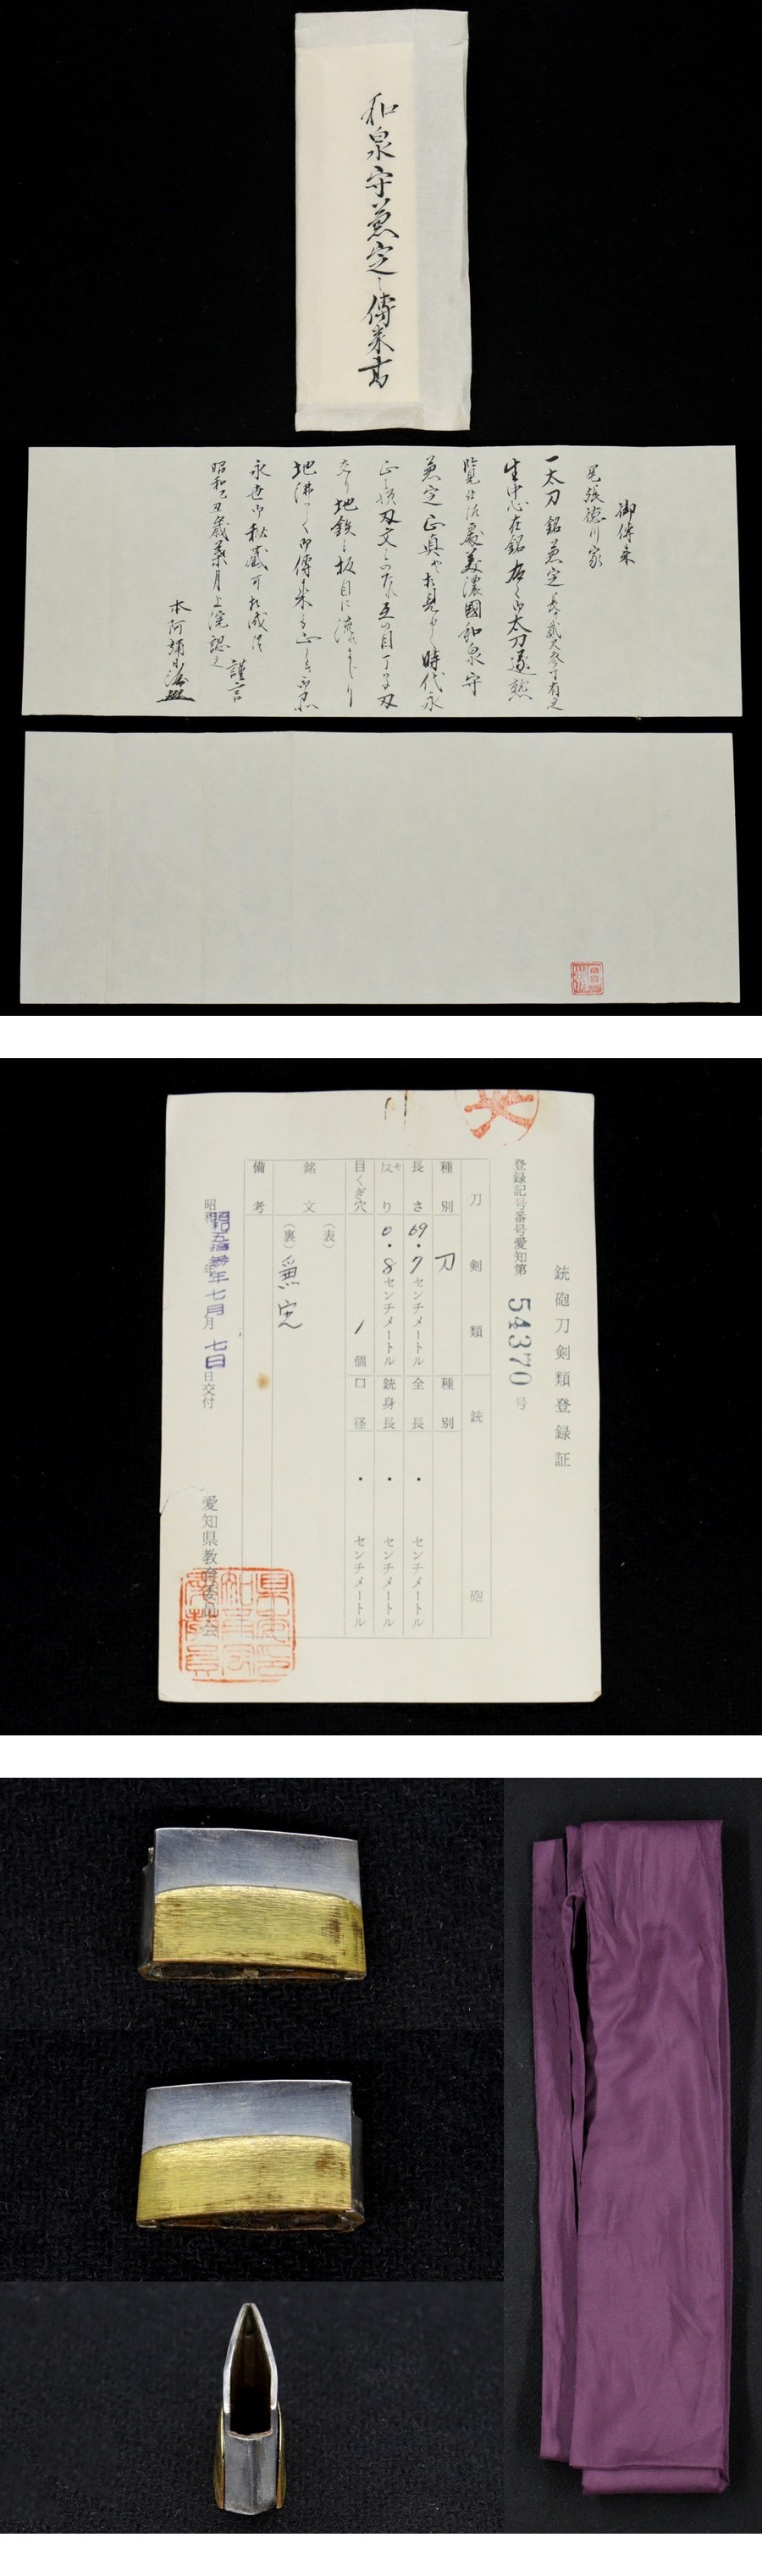 和泉守兼定之傳来書
御傳来
尾張徳川家
一太刀 銘兼定 長サ貳尺参寸有之
生中心在銘
美濃國和泉守
兼定正真 時代永
正之頃刃文 互の目丁子刃
交り地鉄ハ板目に流れまじり
地沸つく御傳来も正しき
永世御秘蔵可相成候
謹言
昭和己丑歳葉月上浣認之
本阿彌
銃砲刀剣類登録証
登録記号番号愛知第 54370 号
刀剣類 銃砲
種別 刀 種別
長さ 69.7センチメートル 全長 ・ センチメートル
反り そ 0.8センチメートル 銃身長 ・ センチメートル
目くぎ穴 1個 口径 ・ センチメートル
銘文 (表) (裏) 兼定
備考
七月 七日 日交付
愛知県教育委員会